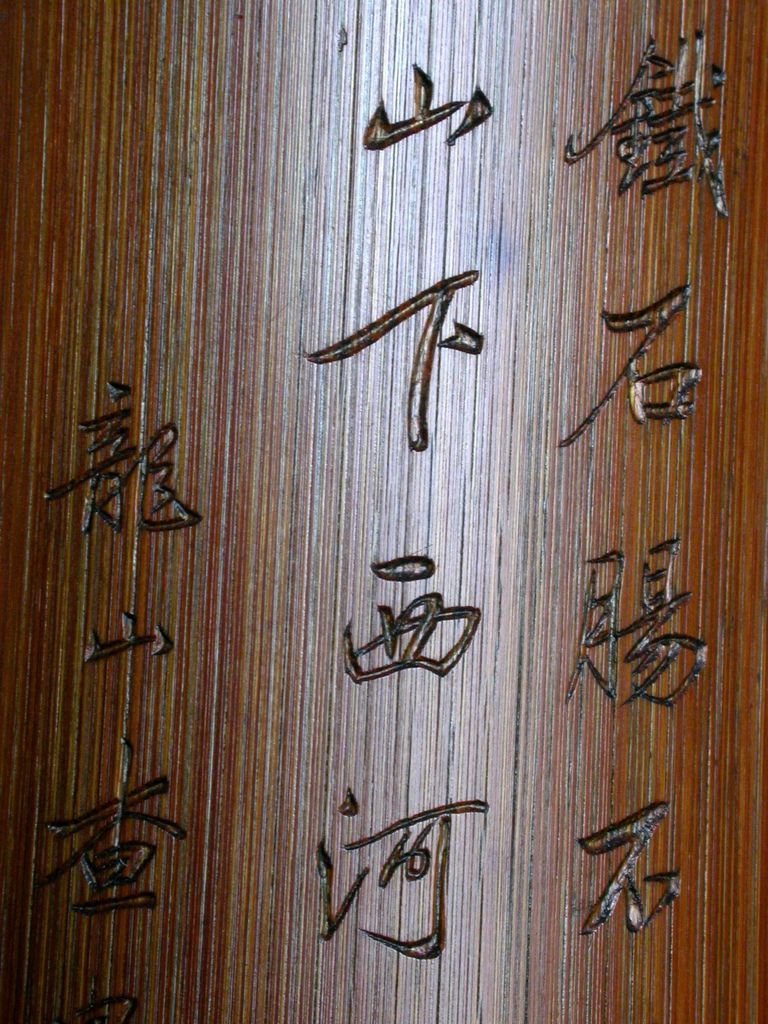 鐵石腸不
山下西河
龍山查